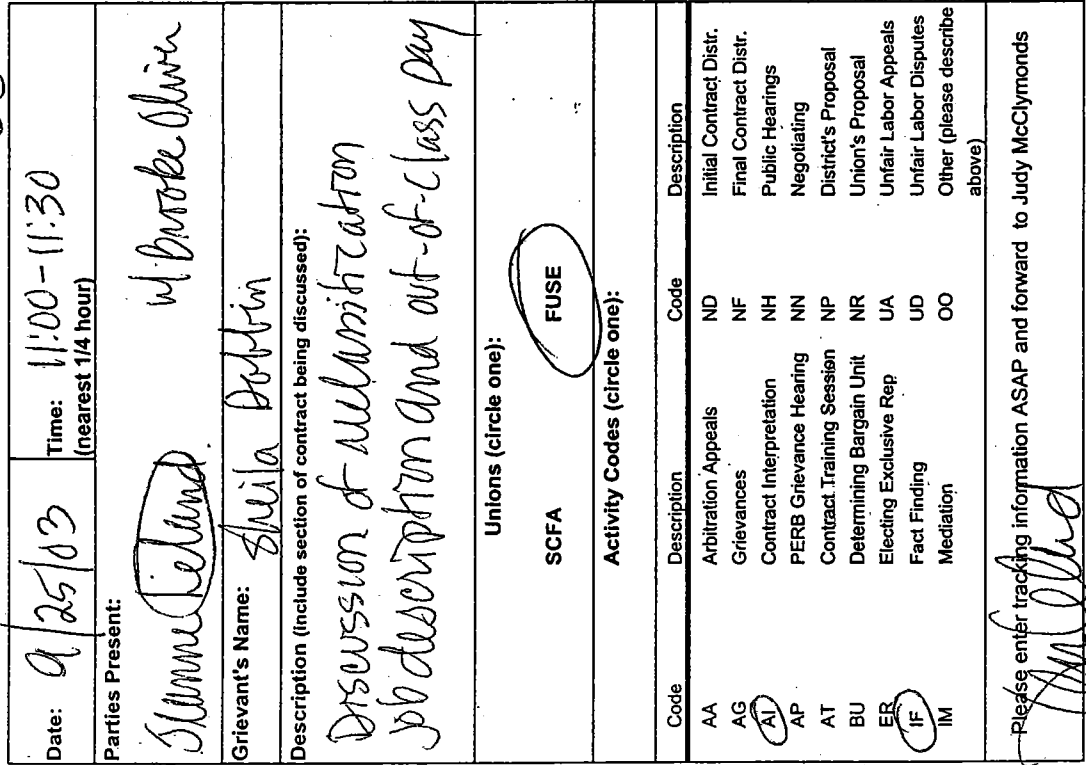 Date: 9/25/03 Time: 11:00-11:30
(nearest 1/4 hour)
Parties Present:
w/ Brooke Oliver
Grievant's Name: Sheila Dobbin
Description (include section of contract being discussed):
Discussion of
job description and out-of-class pay
Unions (circle one):
SCFA FUSE
Activity Codes (circle one):
Code Description Code Description
AA Arbitration Appeals ND Initial Contract Distr.
AG Grievances NF Final Contract Distr.
AI Contract Interpretation NH Public Hearings
AP PERB Grievance Hearing NN Negotiating
AT Contract Training Session NP District's Proposal
BU Determining Bargain Unit NR Union's Proposal
ER Electing Exclusive Rep UA Unfair Labor Appeals
IF Fact Finding UD Unfair Labor Disputes
IM Mediation OO Other (please describe
above)
Please enter tracking information ASAP and forward to Judy McClymonds